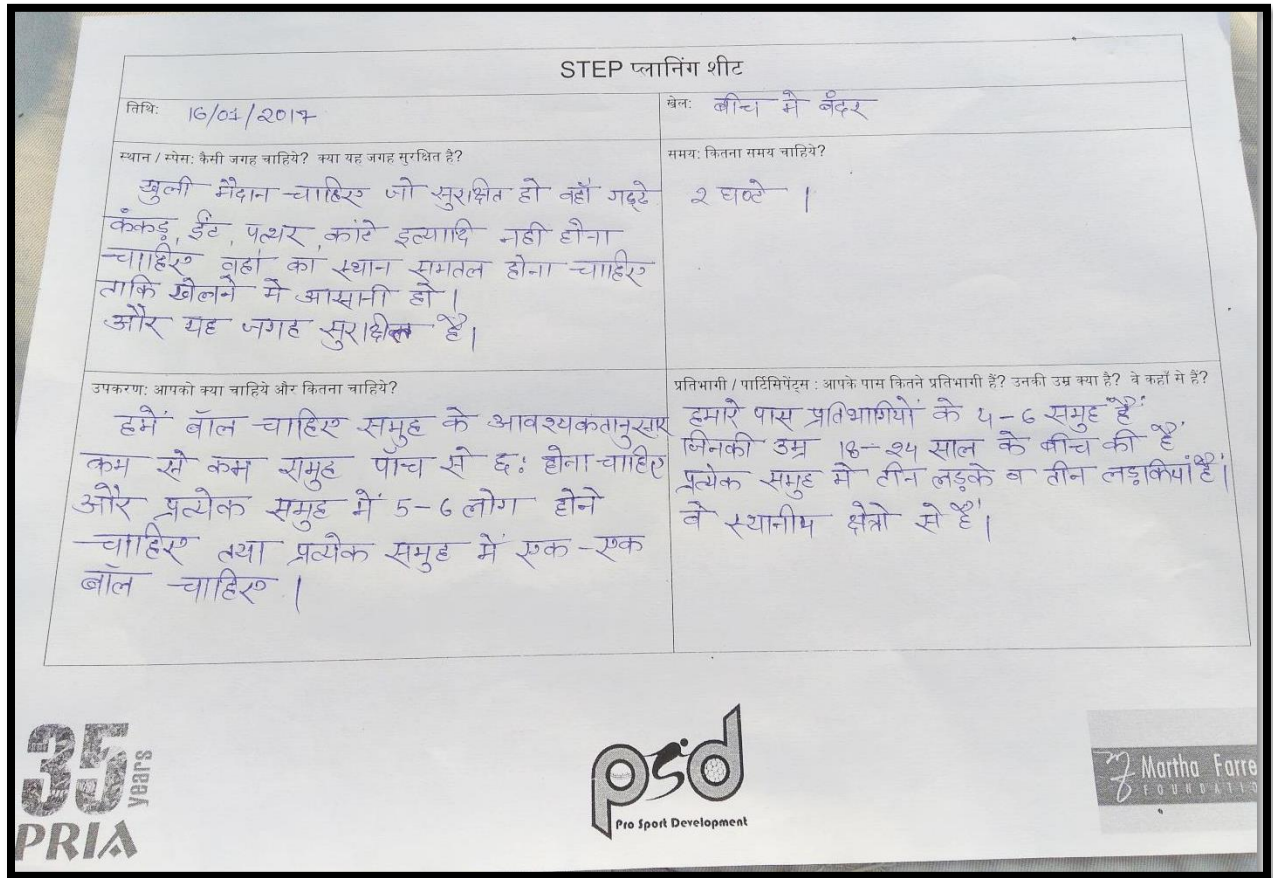 STEP प्लानिंग शीट
तिथि: 16/01/2017
खेल: बीच मे बंदर
स्थान / स्पेस: कैसी जगह चाहिये? क्या यह जगह सुरक्षित है?
खुली मैदान चाहिए जो सुरक्षित हो वहाँ गड्ढे
कंकड़, ईंट, पत्थर, कांटे इत्यादि नही होना
चाहिए वहां का स्थान समतल होना चाहिए
ताकि खेलने मे आसानी हो।
और यह जगह सुरक्षित है।
समय: कितना समय चाहिये?
२ घण्टे ।
उपकरण: आपको क्या चाहिये और कितना चाहिये?
हमें बॉल चाहिए समुह के आवश्यकतानुसार
कम से कम समुह पाँच से छः होना चाहिए
और प्रत्येक समुह में 5-6 लोग होने
चाहिए तथा प्रत्येक समुह में एक-एक
बॉल चाहिए ।
प्रतिभागी / पार्टिसिपेंट्स : आपके पास कितने प्रतिभागी हैं? उनकी उम्र क्या है? वे कहाँ से हैं?
हमारे पास प्रतिभागियों के 5-6 समुह हैं
जिनकी उम्र 18-24 साल के बीच की हैं
प्रत्येक समुह मे तीन लड़के व तीन लड़कियां हैं।
वे स्थानीय क्षेत्रो से हैं।
35
years
PRIA
psd
Pro Sport Development
Martha Farre
FOUNDATIO